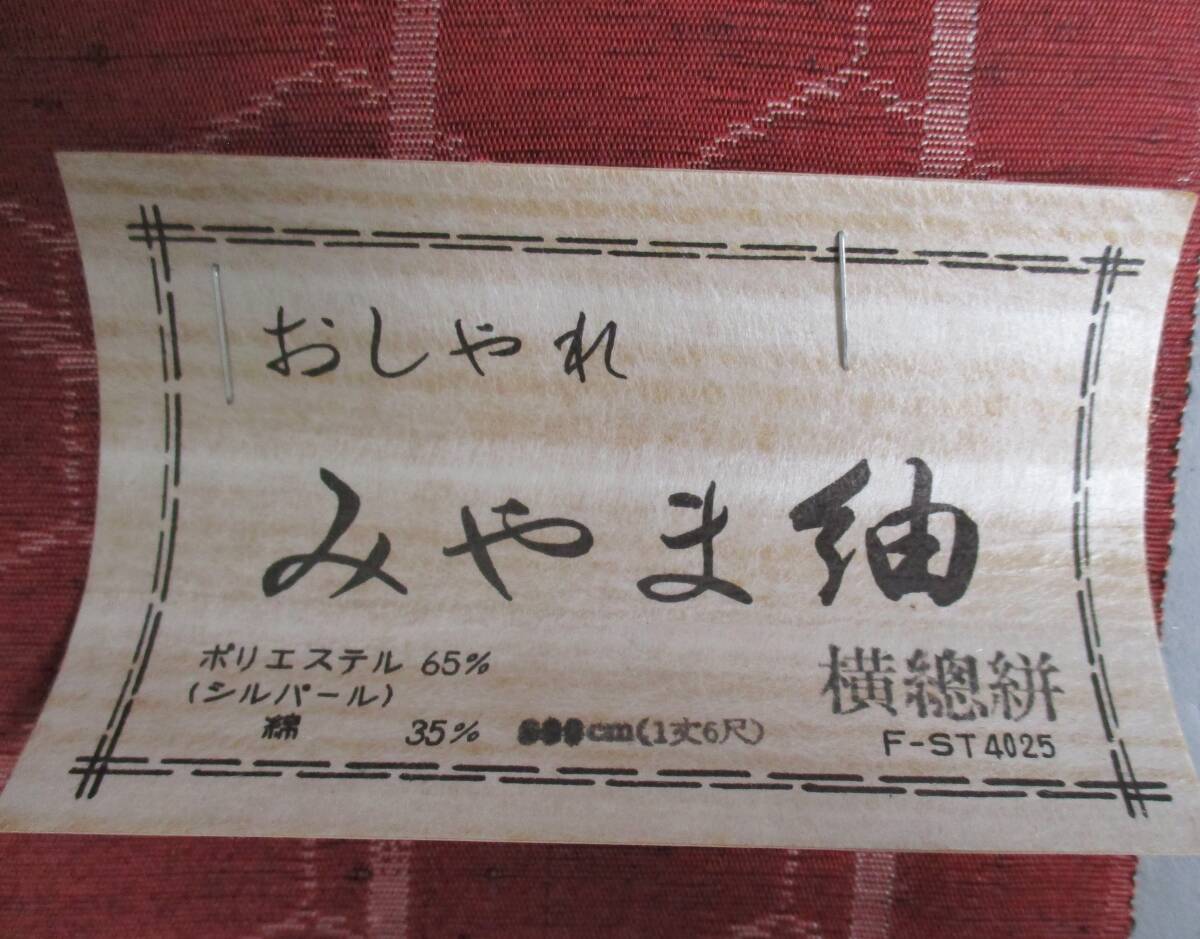 おしゃれ
みやま紬
ポリエステル 65%
(シルパール)
綿 35%
cm(1丈6尺)
横總絣
F-ST4025